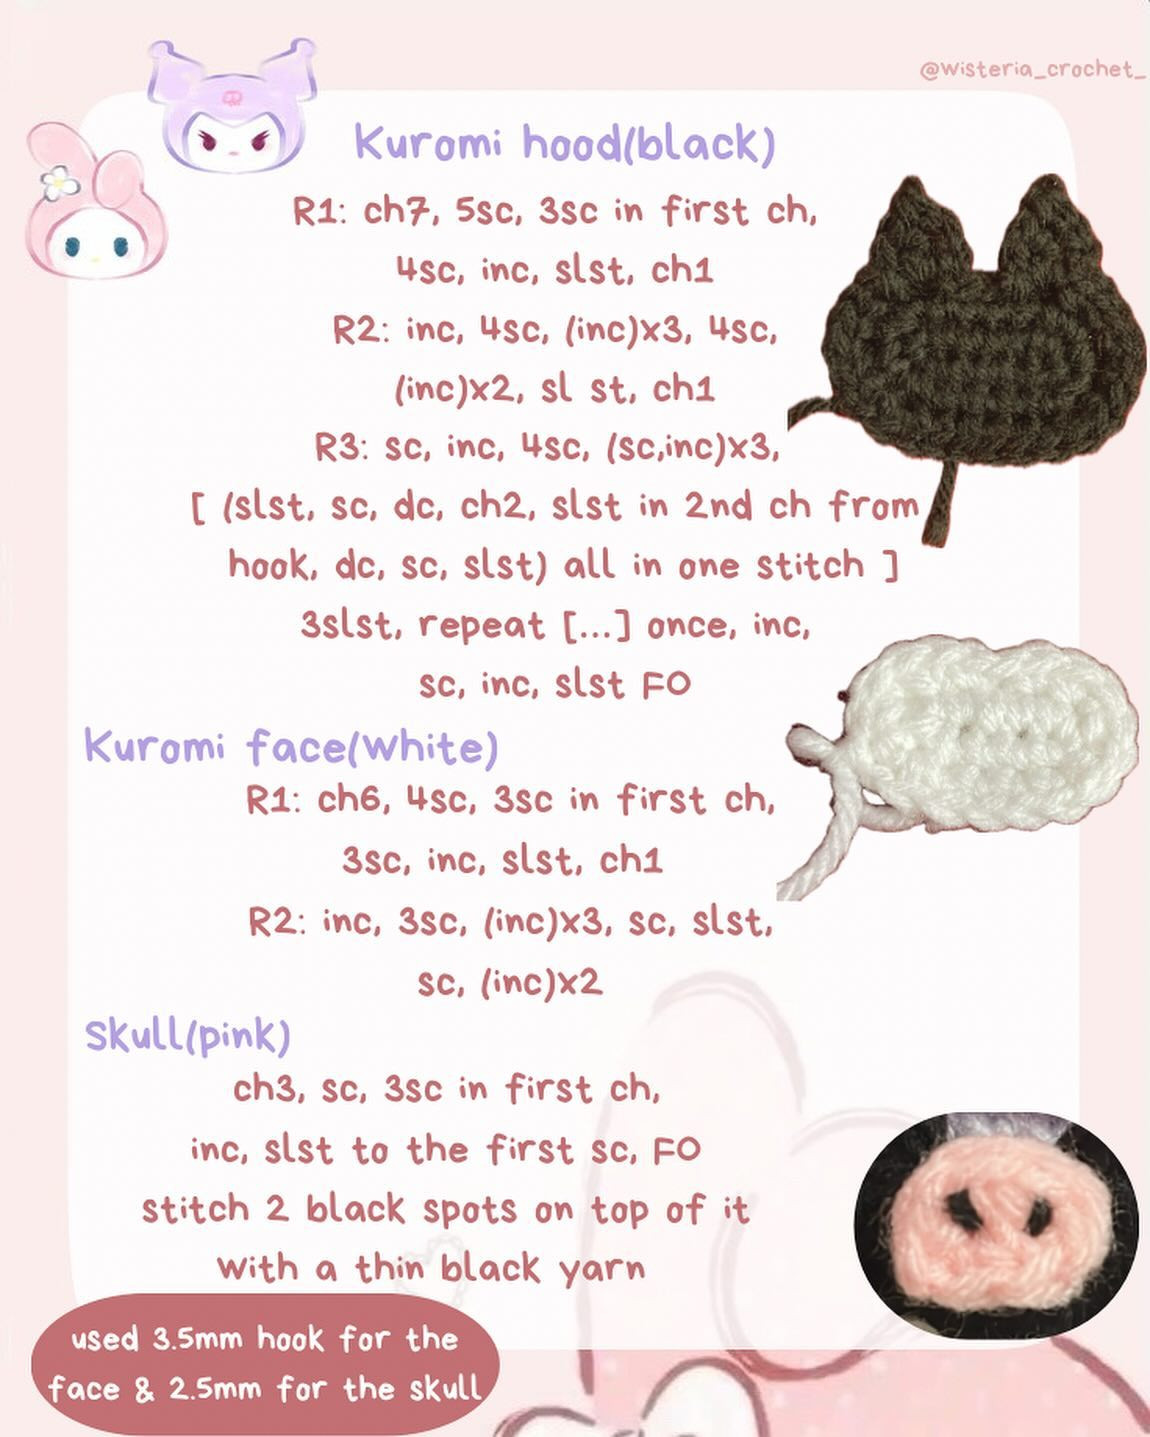 @wisteria_crochet_
Kuromi hood(black)
R1: ch7, 5sc, 3sc in first ch,
4sc, inc, slst, ch1
R2: inc, 4sc, (inc)x3, 4sc,
(inc)x2, sl st, ch1
R3: sc, inc, 4sc, (sc,inc)x3,
[ (slst, sc, dc, ch2, slst in 2nd ch from
hook, dc, sc, slst) all in one stitch ]
3slst, repeat [...] once, inc,
sc, inc, slst FO
Kuromi face(white)
R1: ch6, 4sc, 3sc in first ch,
3sc, inc, slst, ch1
R2: inc, 3sc, (inc)x3, sc, slst,
sc, (inc)x2
Skull(pink)
ch3, sc, 3sc in first ch,
inc, slst to the first sc, FO
stitch 2 black spots on top of it
with a thin black yarn
used 3.5mm hook for the
face & 2.5mm for the skull